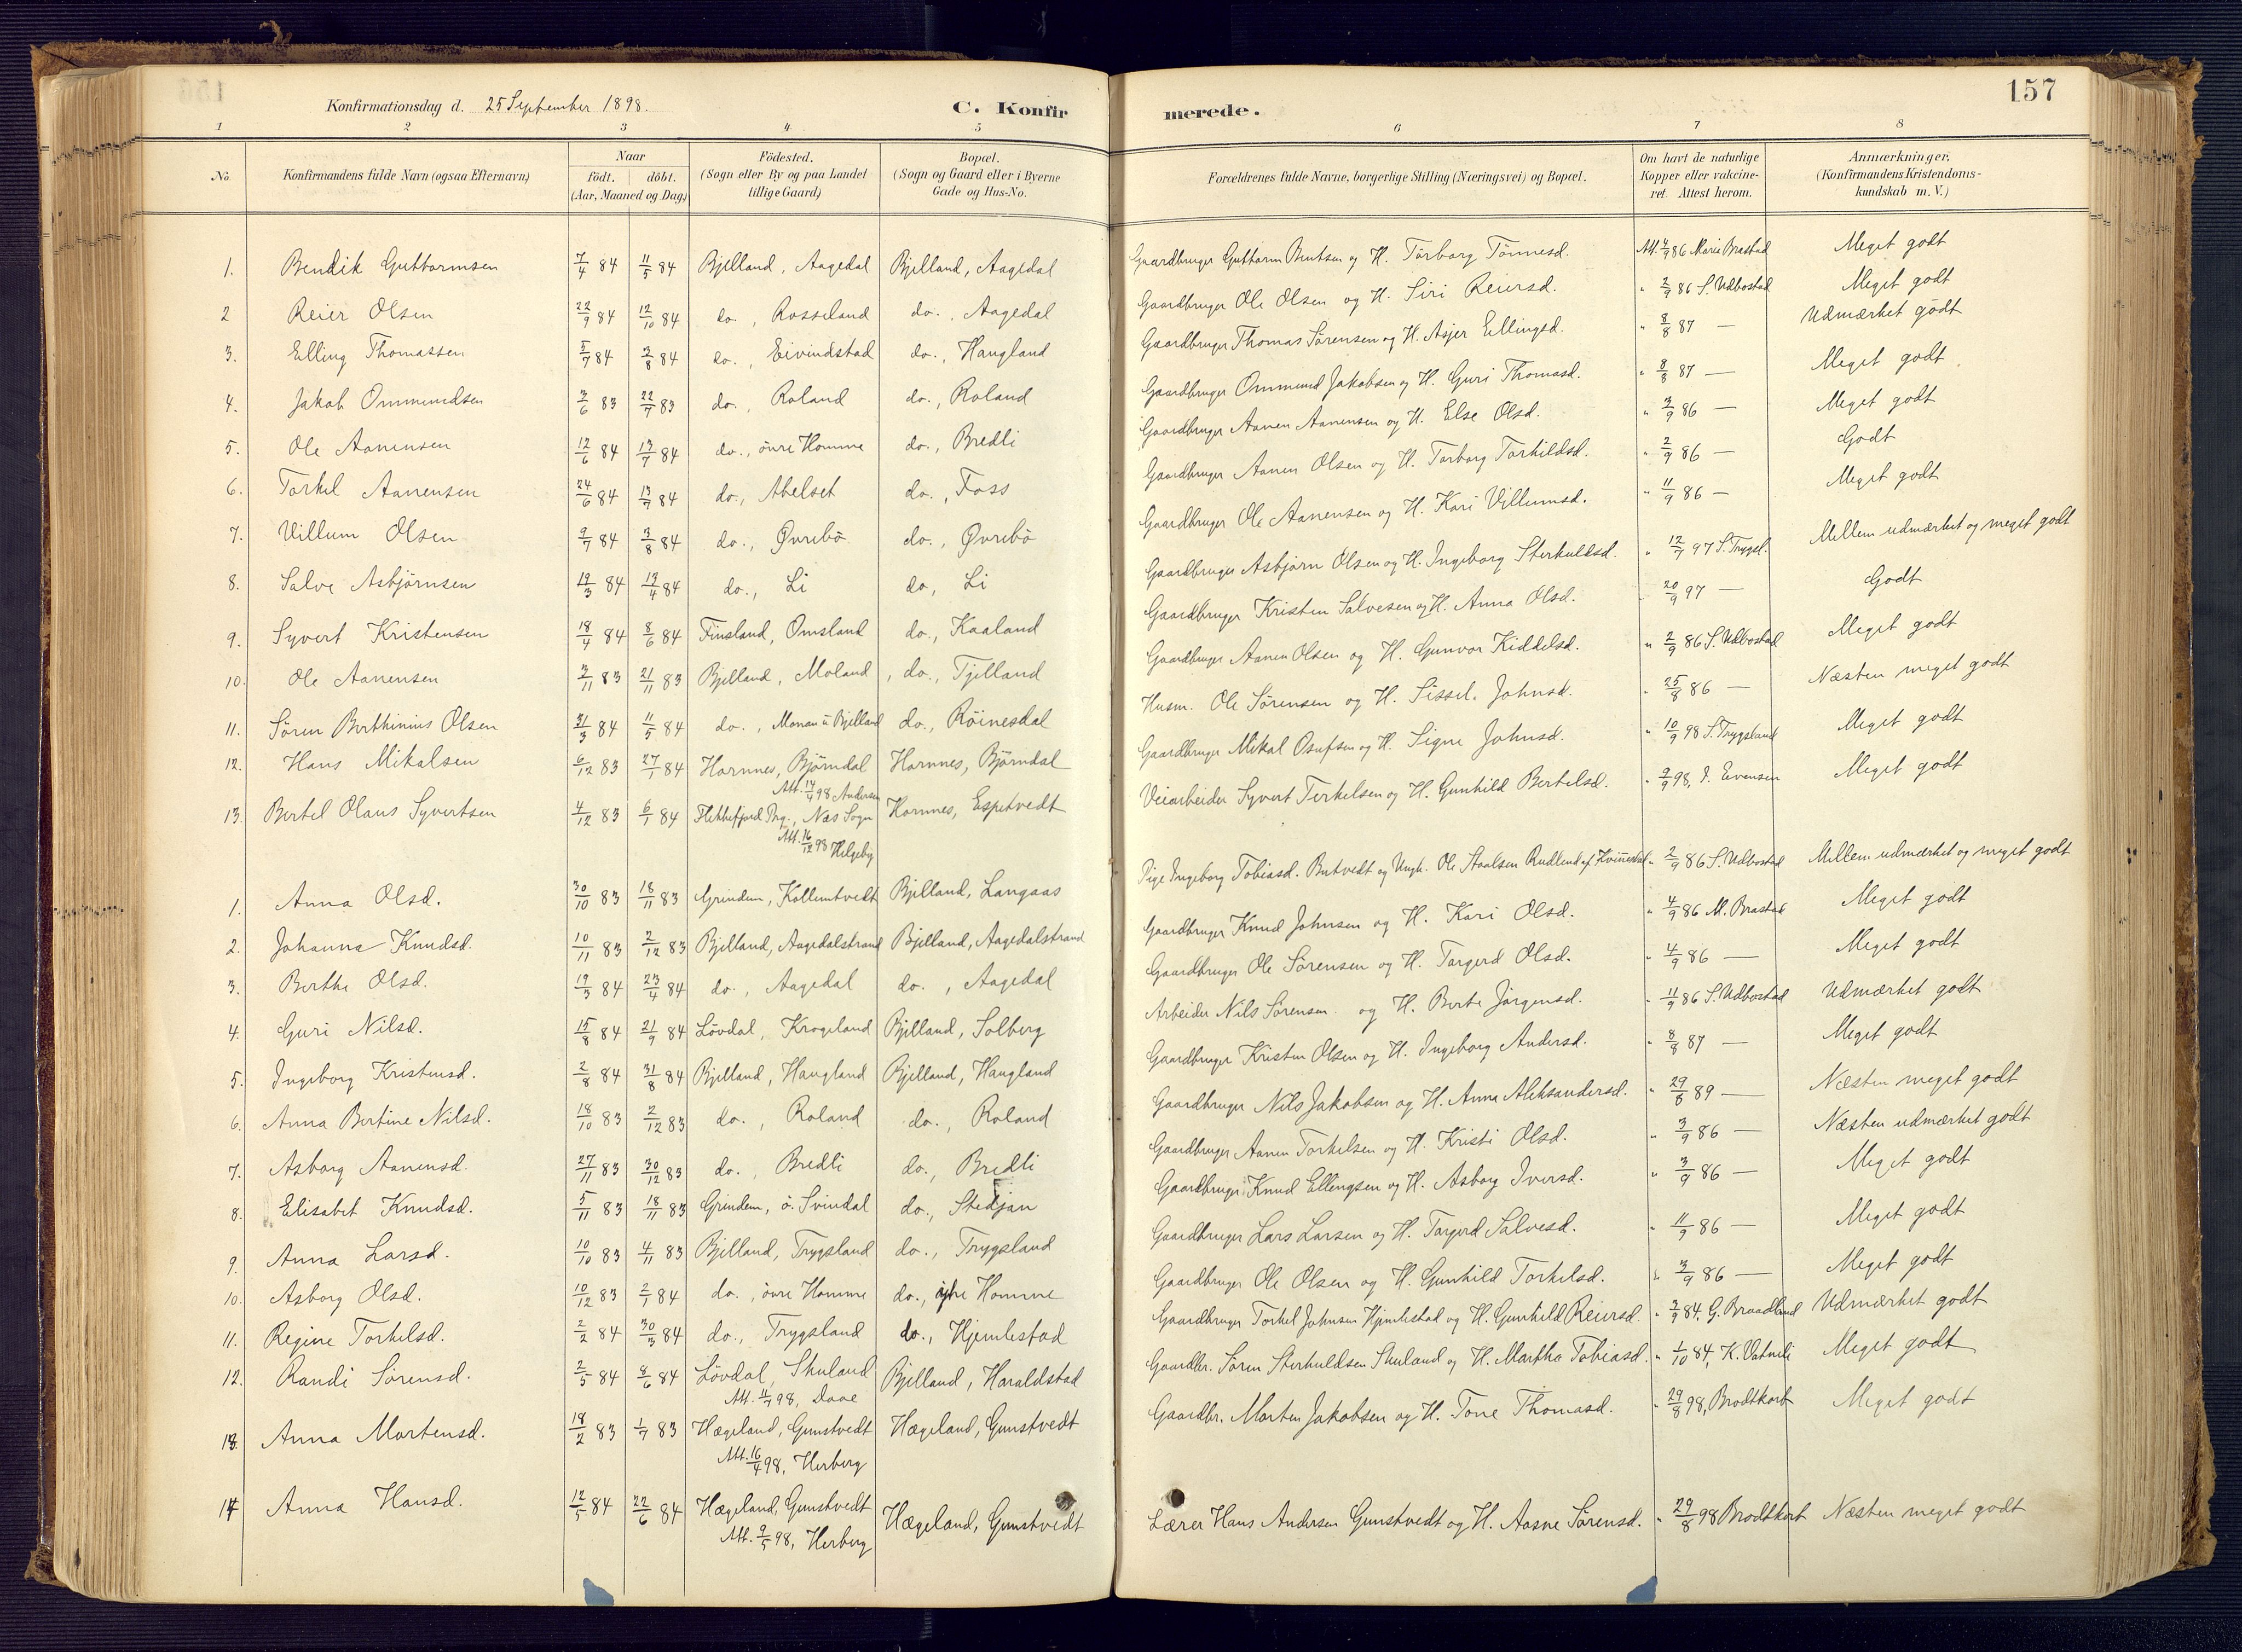 157
Konfirmationsdag d. 25 September 1898.
C. Konfirmerede.
1 2 3 4 5 6 7 8
No. Konfirmandens fulde Navn (ogsaa Efternavn) Naar födt. döbt. (Aar, Maaned og Dag) Födested. (Sogn eller By og paa Landet tillige Gaard) Bopæl. (Sogn og Gaard eller i Byerne Gade og Hus-No. Forældrenes fulde Navne, borgerlige Stilling (Næringsvei) og Bopæl. Om havt de naturlige Kopper eller vakcineret. Attest herom. Anmærkninger. (Konfirmandens Kristendomskundskab m. V.)
1. Bendik Guttormsen 7/4 84 11/5 84 Bjelland, Aagedal Bjelland, Aagedal Gaardbruger Guttorm Bentsen og H. Torborg Tönnesd. Att. 4/9 86 Marie Brastad Meget godt
2 Reier Olsen 22/9 84 12/10 84 do., Rosseland do., Aagedal Gaardbruger Ole Olsen og H. Siri Reiersd. " 2/9 86 S. Udbostad Meget godt
3. Elling Thomassen 5/7 84 3/8 84 do., Eivindstad do., Haugland Gaardbruger Thomas Sörensen og H. Asjer Ellingsd. " 8/8 87 — Udmærket godt
4. Jakob Ommundsen 3/6 83 22/7 83 do., Roland do., Roland Gaardbruger Ommund Jakobsen og H. Guri Thomasd. " 8/8 87 — Meget godt
5. Ole Aanensen 12/6 84 13/7 84 do., övre Homme do., Bredli Gaardbruger Aanen Aanensen og H. Else Olsd. " 3/9 86 — Meget godt
6. Torkel Aanensen 24/6 84 13/7 84 do., Abelset do., Foss Gaardbruger Aanen Olsen og H. Torborg Torkildsd. " 2/9 86 — Godt
7. Villum Olsen 2/7 84 3/8 84 do., Øvrebö do., Øvrebö Gaardbruger Ole Aanensen og H. Kari Villumsd. " 11/9 86 — Meget godt
8. Salve Asbjörnsen 19/3 84 14/4 84 do., Li do, Li Gaardbruger Asbjörn Olsen og H. Ingeborg Sterkuldsd. " 12/7 97 S. Trygsl. Mellem udmærket og meget godt
9. Syvert Kristensen 18/4 84 8/6 84 Finsland, Omsland do., Kaaland Gaardbruger Kristen Salvesen og H. Anna Olsd. 20/9 97 — Godt
10. Ole Aanensen 3/11 83 21/11 83 Bjelland, Moland do., Tjelland Gaardbruger Aanen Olsen og H. Gunvor Kiddelsd. " 2/9 86 S. Udbostad Meget godt
11. Sören Berthinius Olsen 31/3 84 11/5 84 do., Monan u. Bjelland do., Röinesdal Husm. Ole Sörensen og H. Sissel Johnsd. " 25/8 86 — Næsten meget godt
12. Hans Mikalsen 6/12 83 27/1 84 Hornnes, Björndal Hornnes, Björndal Gaardbruger Mikal Osufsen og H. Signe Johnsd. " 10/9 98 S. Trygsland Meget godt
Att. 14/4 98 Andersen
13. Bertel Olaus Syvertsen 4/12 83 6/1 84 Flekkefjord Prg., Næs Sogn Hornnes, Espetvedt Veiarbeider Syvert Terkelsen og H. Gunhild Bertelsd. " 9/9 98, J. Evensen Meget godt
Att. 16/12 98 Helgeby
1. Anna Olsd. 30/10 83 18/11 83 Grindem, Kollemtvedt Bjelland, Langaas Pige Ingeborg Tobiasd. Butvedt og Ungk. Ole Staalsen Rudlend af Kvinesdal " 2/9 86 S. Udbostad Mellem udmærket og meget godt
2. Johanna Knudsd. 10/11 83 2/12 83 Bjelland, Aagedalstrand Bjelland, Aagedalstrand Gaardbruger Knud Johnsen og H. Kari Olsd. " 4/9 86 M. Brastad Meget godt
3. Berthe Olsd. 19/3 84 23/4 84 do., Aagedal do., Aagedal Gaardbruger Ole Sörensen og H. Torgerd Olsd. " 4/9 86 — Meget godt
4. Guri Nilsd. 15/8 84 21/9 84 Lövdal, Krogeland Bjelland, Solberg Arbeider Nils Sörensen og H. Berte Jörgensd. " 11/9 86 S. Udbostad Udmærket godt
5. Ingeborg Kristensd. 2/8 84 31/8 84 Bjelland, Haugland Bjelland, Haugland Gaardbruger Kristen Olsen og H. Ingeborg Andersd. " 8/8 87 — Meget godt
6. Anna Bertine Nilsd. 18/10 83 2/12 83 do., Roland do., Roland Gaardbruger Nils Jakobsen og H. Anna Aleksandersd. " 29/8 89 — Næsten meget godt
7. Asborg Aanensd. 27/11 83 30/12 83 do., Bredli do., Bredli Gaardbruger Aanen Torkelsen og H. Kristi Olsd. " 3/9 86 — Næsten udmærket godt
8. Elisabet Knudsd. 5/11 83 18/11 83 Grindem, ö. Svindal do., Stedjan Gaardbruger Knud Ellingsen og H. Asborg Iversd. " 3/9 86 — Meget godt
9. Anna Larsd. 10/10 83 4/11 83 Bjelland, Trygsland do., Trygsland Gaardbruger Lars Larsen og H. Torgerd Salvesd. " 11/9 86 — Meget godt
10. Asborg Olsd. 10/12 83 2/1 84 do., övre Homme do., övre Homme Gaardbruger Ole Olsen og H. Gunhild Torkelsd. " 3/9 86 — Meget godt
11. Regine Torkelsd. 2/2 84 30/3 84 do., Trygsland do., Hjemlestad Gaardbruger Torkel Johnsen Hjemlestad og H. Gunhild Reiersd. " 3/9 84, G. Braadland Udmærket godt
12. Randi Sörensd. 2/5 84 8/6 84 Lövdal, Skuland Bjelland, Haraldstad Gaardbr. Sören Sterkuldsen Skuland og H. Martha Tobiasd. " 1/10 84, K. Vatneli Meget godt
Att. 4/7 98, Daae
13. Anna Mortensd. 18/2 83 1/7 83 Hægeland, Gunstvedt Hægeland, Gunstvedt Gaardbr. Morten Jakobsen og H. Tone Thomasd. " 29/8 98, Brodtkorb Meget godt
Att. 16/4 98, Herberg
14 Anna Hansd. 12/5 84 22/6 84 Hægeland, Gunstvedt Hægeland, Gunstvedt Lærer Hans Andersen Gunstvedt og H. Aasne Sörensd. " 29/8 98 Brodtkorb Næsten meget godt
Att. 9/5 98, Herberg